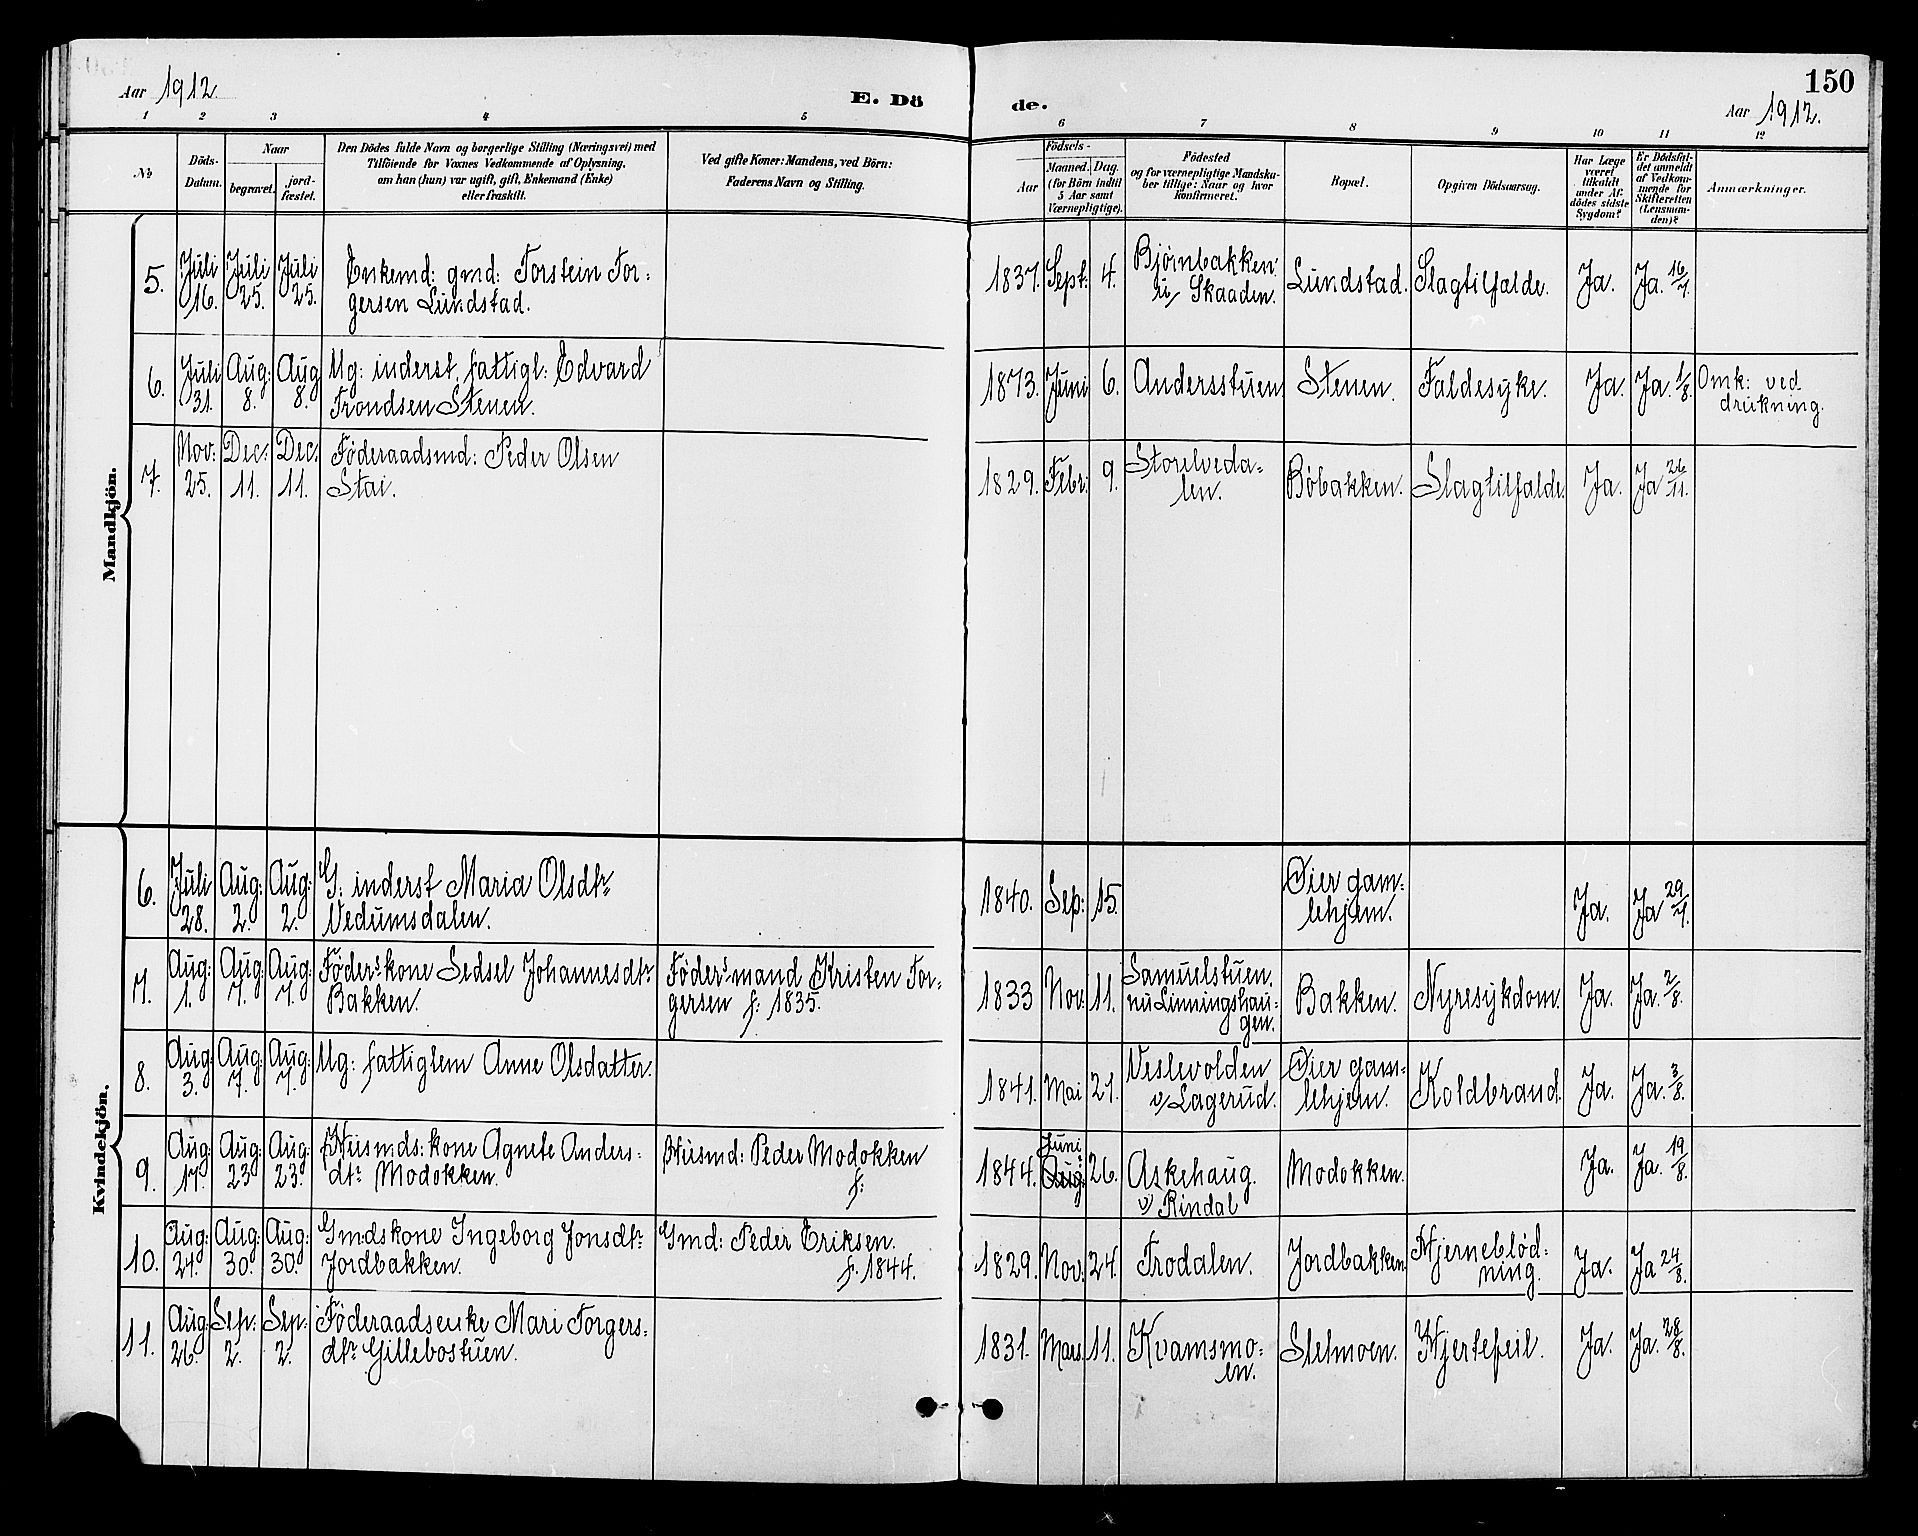 Aar 1912.
E. Dö
de.
150
Aar 1912.
1 2 3 4 5 6 7 8 9 10 11 12
No
Döds-
Datum.
Naar
begravet.
jord-
fæstet.
Den Dödes fulde Navn og borgerlige Stilling (Næringsvei) med
Tilföiende for Voxnes Vedkommende af Oplysning,
om han (hun) var ugift, gift, Enkemand (Enke)
eller fraskilt.
Ved gifte Koner: Mandens, ved Börn:
Faderens Navn og Stilling.
Födsels-
Aar
Maaned. Dag.
(for Börn indtil
5 Aar samt
Værnepligtige).
Födested
og for værnepligtige Mandska-
ber tillige: Naar og hvor
konfirmeret.
Bopæl.
Opgiven Dödsaarsag.
Har Læge
været
tilkaldt
under Af-
dödes sidste
Sygdom?
Er Dödsfal-
det anmeldt
af Vedkom-
mende for
Skifteretten
(Lensman-
den)?
Anmærkninger.
Mandkjön.
5. Juli 16. Juli 25. Juli 25. Enkemd: gmd: Torstein Tor-
gersen Lundstad.
1837. Sept: 4. Bjørnbakken
u/ Skaaden. Lundstad. Slagtilfælde. Ja. Ja. 16/7.
6. Juli 31. Aug: 8. Aug 8. Ug: inderst, fattigl: Edvard
Trondsen Stenen.
1873. Juni 6. Andersstuen Stenen. Faldesyke. Ja. Ja. 1/8. Omk: ved
drukning.
7. Nov: 25. Dec: 11. Dec: 11. Føderaadsmd: Peder Olsen
Stai.
1829. Febr: 9. Storelveda-
len. Bøbakken. Slagtilfælde. Ja. Ja 26/11.
Kvindekjön.
6. Juli 28. Aug: 2. Aug: 2. G: inderst Maria Olsdtr
Vedumsdalen.
1840. Sep: 15. Øier gam-
lehjem. Ja. Ja 29/7.
7. Aug: 1. Aug: 7. Aug: 7. Føders kone Sedsel Johannesdtr
Bakken. Føders mand Kristen Tor-
gersen f: 1835.
1833 Nov: 11. Samuelstuen.
nu Linningshau-
gen. Bakken. Nyresykdom. Ja. Ja. 2/8.
8. Aug: 3. Aug: 7. Aug: 7. Ug: fattiglem Anne Olsdatter.
1841. Mai 21. Veslevolden
v/ Lagerud. Øier gam-
lehjem. Koldbrand. Ja. Ja. 3/8.
9. Aug: 17. Aug: 23 Aug: 23. Husmds: kone Agnete Anders-
dtr Modokken. Husmd: Peder Modokken
f:
1844. Juni Aug: 26. Askehaug.
v/ Rindal Modokken. Ja. Ja. 19/8.
10. Aug: 24. Aug: 30. Aug: 30. Gmdskone Ingeborg Jonsdtr
Jordbakken. Gmd: Peder Eriksen.
f. 1844.
1829. Nov. 24. Trodalen. Jordbakken Hjerneblød-
ning. Ja. Ja 24/8.
11. Aug: 26. Sep: 2. Sep: 2. Føderaadsenke Mari Torgers-
dtr Gillebostuen.
1831. Mars. 11. Kvamsmo-
en. Sletmoen. Hjertefeil. Ja. Ja. 28/8.